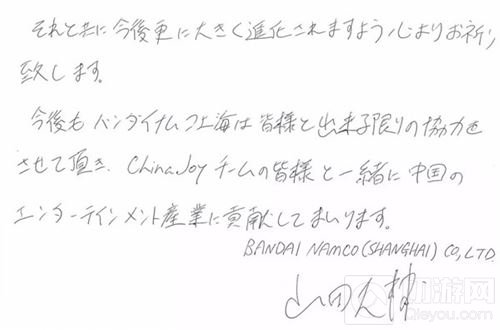 それと共に今後更に大きく進化されますよう心よりお祈り
致します。
今後もバンダイナムコ上海は皆様と出来る限りの協力を
させて頂き、ChinaJoyチームの皆様と一緒に中国の
エンターテインメント産業に貢献してまいります。
BANDAI NAMCO (SHANGHAI) CO., LTD.
山田大
叽游网
Qieyou.com